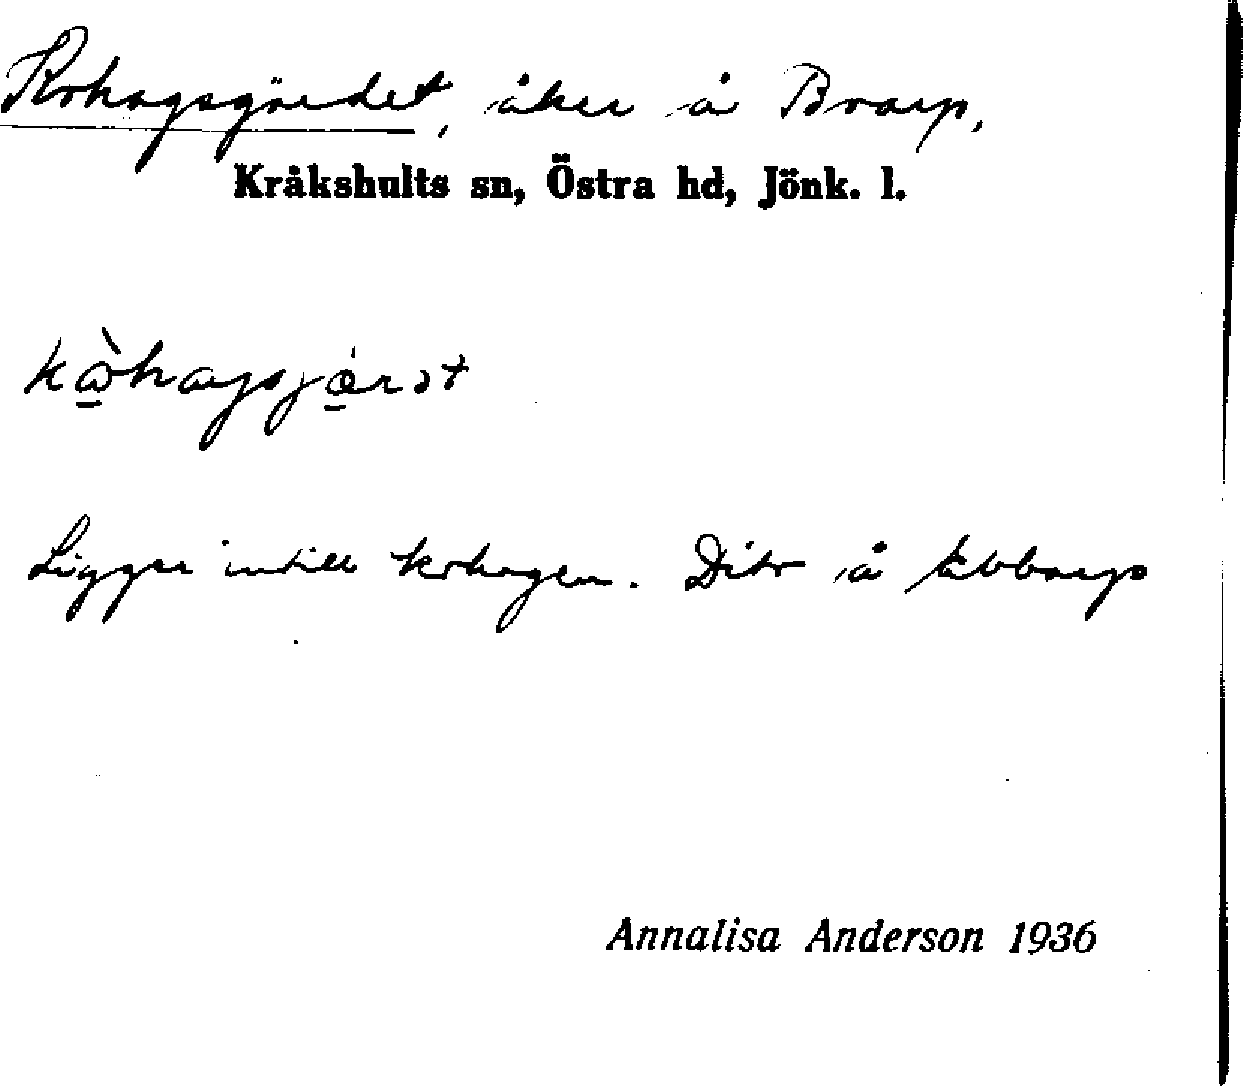 Kohagsgärdet, åker å Boarp,
Kråkshults sn, Östra hd, Jönk. l.
Ligger intill kohagen. Dito å Ebbarp
Annalisa Anderson 1936